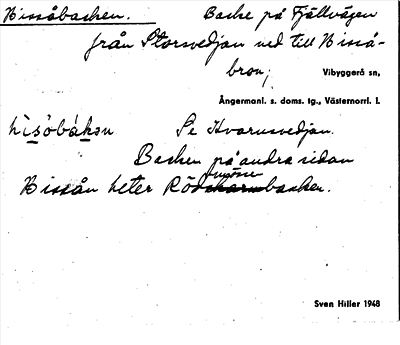 Nissåbacken. Backe på Fjällvägen
från Storsvedjan ned till Nisså-
bron; Vibyggerå sn,
Ångermanl. s. doms. tg., Västernorrl. l.
Se Kvarnsvedjan.
Backen på andra sidan
Nissån heter Rödmossebacken.
Sven Hiller 1948